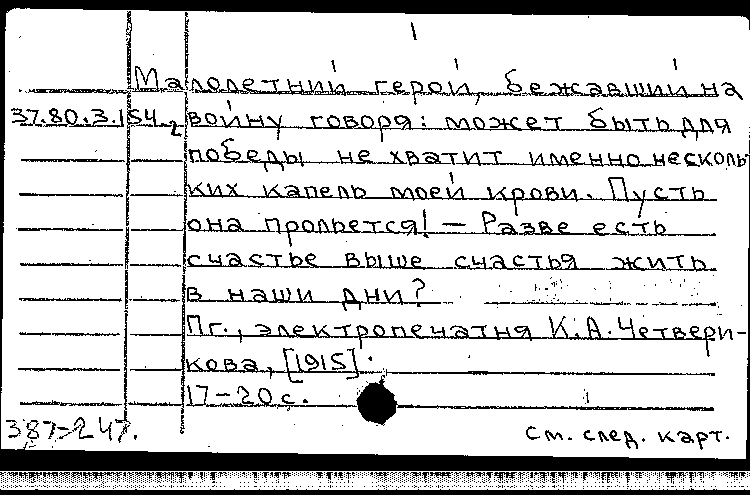 1
Малолетний герой, бежавший на
37.80.3.154₂ войну говоря: может быть для
победы не хватит именно несколь
ких капель моей крови. Пусть
она прольется! — Разве есть
счастье выше счастья жить
в наши дни?
Пг., электропечатня К.А. Четвери-
кова, [1915].
17-20 с.
387-247.
См. след. карт.